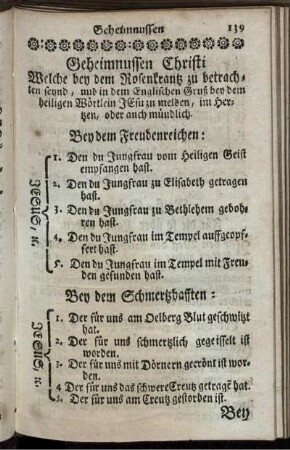 Geheimnussen 139
Geheimnussen Christi
Welche bey dem Rosenkrantz zu betrach-
ten seynd, und in dem Englischen Gruß bey dem
heiligen Wörtlein JEsu zu melden, im Her-
tzen, oder auch mündlich.
Bey dem Freudenreichen:
JESUS, ꝛc.
1. Den du Jungfrau vom Heiligen Geist
empfangen hast.
2. Den du Jungfrau zu Elisabeth getragen
hast.
3. Den du Jungfrau zu Bethlehem gebohr-
ren hast.
4. Den du Jungfrau im Tempel auffgeopf-
fert hast.
5. Den du Jungfrau im Tempel mit Freu-
den gefunden hast.
Bey dem Schmertzhafften:
JESUS, ꝛc.
1. Der für uns am Oelberg Blut geschwitzt
hat.
2. Der für uns schmertzlich gegeisselt ist
worden.
3. Der für uns mit Dörnern gecrönt ist wor-
den.
4 Der für uns das schwere Creutz getragē hat.
5. Der für uns am Creutz gestorben ist.
Bey